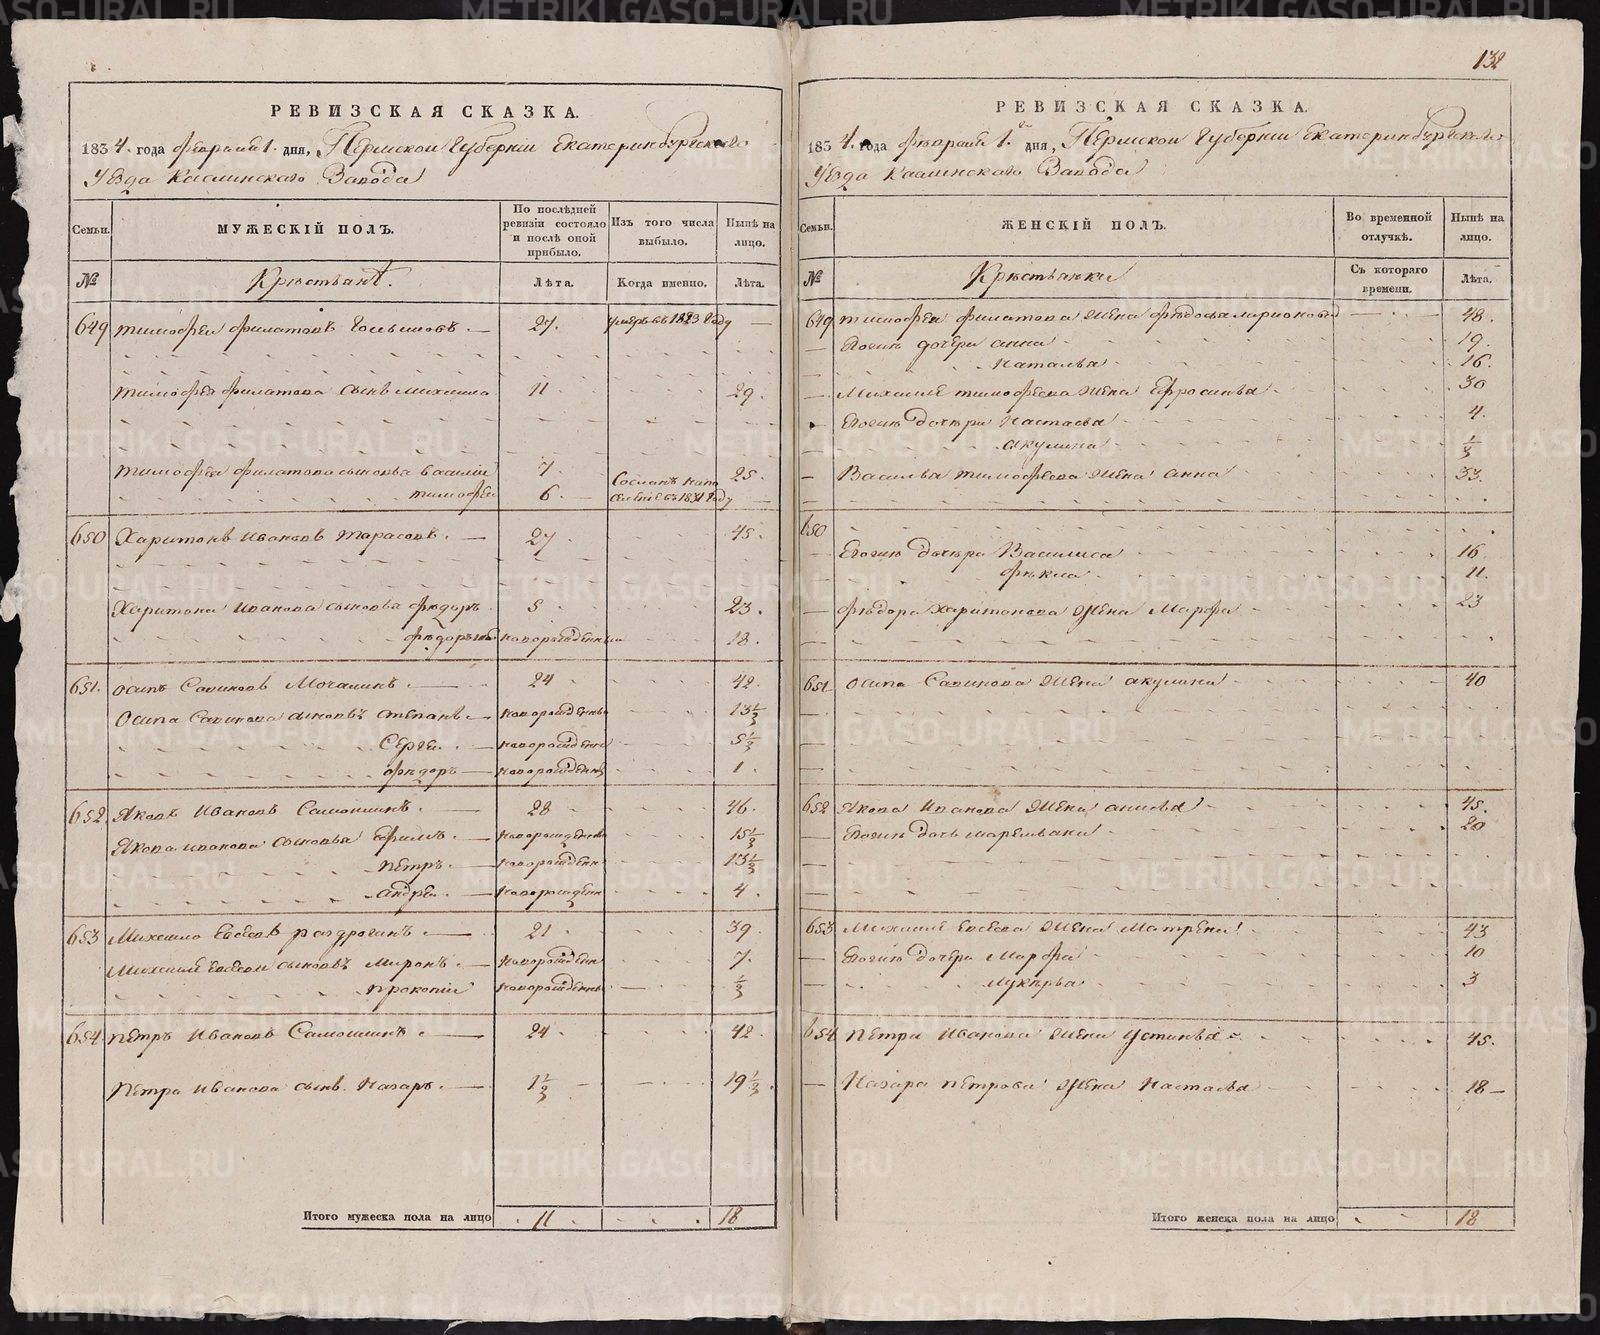 132
РЕВИЗСКАЯ СКАЗКА.
1834. года февраля 1. дня, Пермской Губерніи Екатеринбургскаго
Уѣзда Каслинскаго Завода
Семьи.
МУЖЕСКІЙ ПОЛЪ.
По послѣдней ревизіи состояло и послѣ оной прибыло.
Изъ того числа выбыло.
Нынѣ на лицо.
№
Крестьянѣ.
Лѣта.
Когда именно.
Лѣта.
649 Тимофей Филатовъ 27. умеръ въ 1823 году
Тимофея Филатова сынъ Михайло 11 29.
Тимофея Филатова сыновья Василій 7 25.
Тимофей 6. Сосланъ на поселѣніе въ 1831 году
650 Харитонъ Ивановъ Тарасовъ. 27 45.
Харитона Иванова сыновья Федоръ 5 23.
Федоръ новорожденныи 18.
651. Осипъ Савиновъ Мочалинъ 24 42.
Осипа Савинова сыновья Степанъ новорожденны 13 1/2
Сергеи новорожденны 5 1/2
Федоръ новорожденны 1.
652 Яковъ Ивановъ Самошинъ. 28 46.
Якова Иванова сыновья Ефимъ новорожденны 15 1/2
Петръ новорожденн 13 1/2
Андреи новорожденн 4.
653 Михайло Евсеевъ 21 39.
Михаиле Евсеева сыновья Миронъ новорожденн 7.
Прокопіи новорожденны 1/2
654. Петръ Ивановъ Самошинъ 24 42.
Петра Иванова сынъ Назаръ 1 1/2 19 1/2
Итого мужеска пола на лицо 11 18
РЕВИЗСКАЯ СКАЗКА.
1834. года февраля 1. дня, Пермской Губерніи Екатеринбургскаго
Уѣзда Каслинскаго Завода
Семьи.
ЖЕНСКІЙ ПОЛЪ.
Во временной отлучкѣ.
Нынѣ на лицо.
№
Крестьянки
Съ котораго времени.
Лѣта.
649 Тимофея Филатова жена Федосья Ларионова 48.
дочери Анна 19.
Наталья 16.
Михаиле Тимофеева жена Ефросинья 30
дочери Настасья 4.
Акулина 1/2
Василья Тимофеева жена Анна 33.
650
дочери Василиса 16
Фекла 11.
Федора Харитонова жена Марфа 23
651 Осипа Савинова жена Акулина 40
652 Якова Иванова жена Анисья 45.
дочь Маремьяна 20
653 Михаиле Евсеева жена Матрена 43
дочери Марфа 10
Лукерья 3
654 Петра Иванова жена Устинья 45.
Назара Петрова жена Настасья 18
Итого женска пола на лицо 18
METRIKI.GASO-URAL.RU